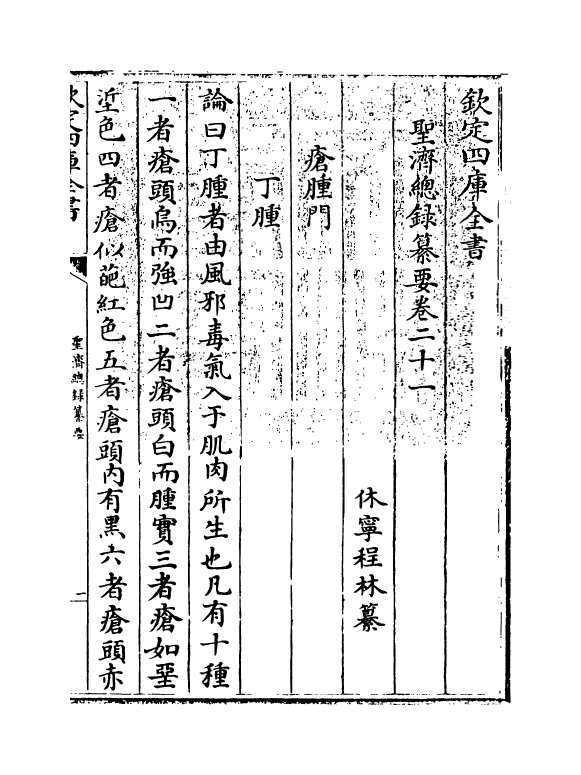 欽定四庫全書
聖濟總録纂要卷二十一
休寧程林纂
瘡腫門
丁腫
論曰丁腫者由風邪毒氣入于肌肉所生也凡有十種
一者瘡頭烏而強凹二者瘡頭白而腫實三者瘡如
色四者瘡似葩紅色五者瘡頭内有黑六者瘡頭赤
欽定四庫全書
聖濟總録纂要